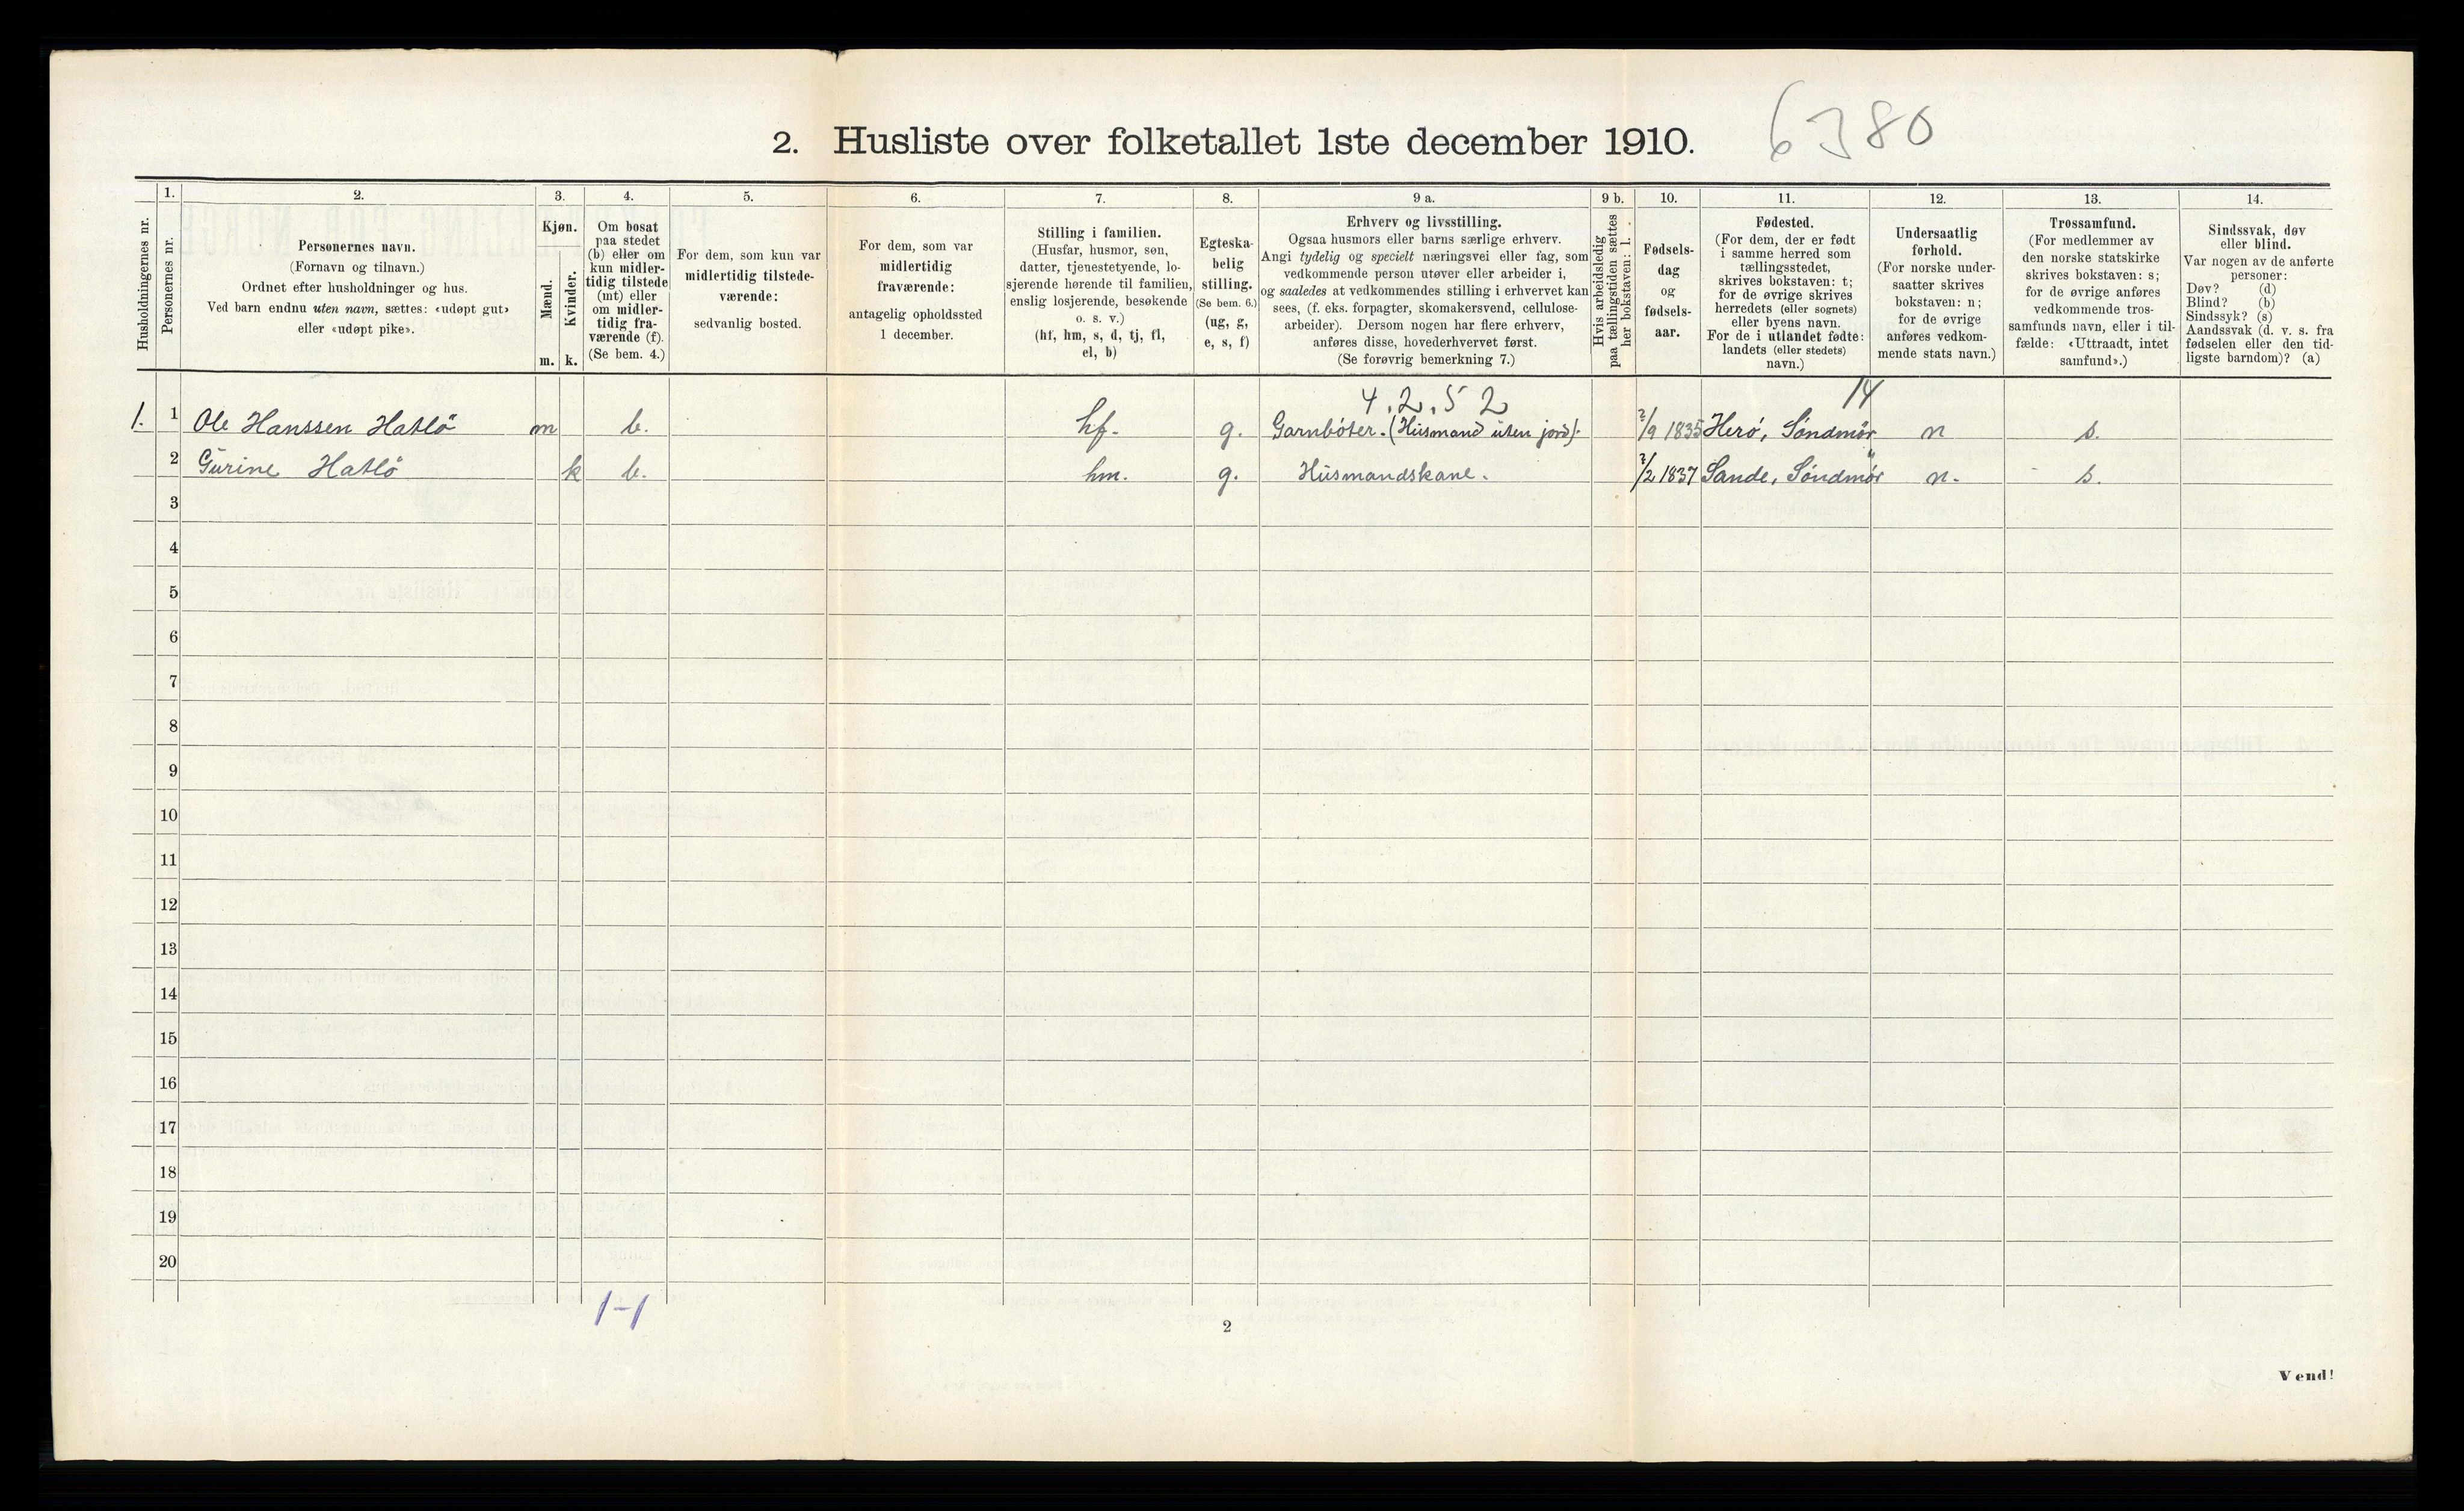 2. Husliste over folketallet 1ste december 1910.
6380
Husholdningernes nr.
1.
Personernes nr.
2.
Personernes navn.
(Fornavn og tilnavn.)
Ordnet efter husholdninger og hus.
Ved barn endnu uten navn, sættes: «udøpt gut»
eller «udøpt pike».
3.
Kjøn.
Mænd.
Kvinder.
m. k.
4.
Om bosat
paa stedet
(b) eller om
kun midler-
tidig tilstede
(mt) eller
om midler-
tidig fra-
værende (f).
(Se bem. 4.)
5.
For dem, som kun var
midlertidig tilstede-
værende:
sedvanlig bosted.
6.
For dem, som var
midlertidig
fraværende:
antagelig opholdssted
1 december.
7.
Stilling i familien.
(Husfar, husmor, søn,
datter, tjenestetyende, lo-
sjerende hørende til familien,
enslig losjerende, besøkende
o. s. v.)
(hf, hm, s, d, tj, fl,
el, b)
8.
Egteska-
belig
stilling.
(Se bem. 6.)
(ug, g,
e, s, f)
9 a.
Erhverv og livsstilling.
Ogsaa husmors eller barns særlige erhverv.
Angi tydelig og specielt næringsvei eller fag, som
vedkommende person utøver eller arbeider i,
og saaledes at vedkommendes stilling i erhvervet kan
sees, (f. eks. forpagter, skomakersvend, cellulose-
arbeider). Dersom nogen har flere erhverv,
anføres disse, hovederhvervet først.
(Se forøvrig bemerkning 7.)
9 b.
Hvis arbeidsledig
paa tællingstiden sættes
her bokstaven: l.
10.
Fødsels-
dag
og
fødsels-
aar.
11.
Fødested.
(For dem, der er født
i samme herred som
tællingsstedet,
skrives bokstaven: t;
for de øvrige skrives
herredets (eller sognets)
eller byens navn.
For de i utlandet fødte:
landets (eller stedets)
navn.)
12.
Undersaatlig
forhold.
(For norske under-
saatter skrives
bokstaven: n;
for de øvrige
anføres vedkom-
mende stats navn.)
13.
Trossamfund.
(For medlemmer av
den norske statskirke
skrives bokstaven: s;
for de øvrige anføres
vedkommende tros-
samfunds navn, eller i til-
fælde: «Uttraadt, intet
samfund».)
14.
Sindssvak, døv
eller blind.
Var nogen av de anførte
personer:
Døv? (d)
Blind? (b)
Sindssyk? (s)
Aandssvak (d. v. s. fra
fødselen eller den tid-
ligste barndom)? (a)
4.2.5 2 14
1. 1 Ole Hanssen Hatlö m b. hf. g. Garnbóter. (Húsmand úten jord). ?/9 1835 Heró, Söndmör n s.
2 Gúrine Hatlö k b. hm. g. Húsmandskane. ?/2 1837 Sande, Söndmör n. s.
3
4
5
6
7
8
9
10
11
12
13
14
15
16
17
18
19
20
1-1
2
Vend!